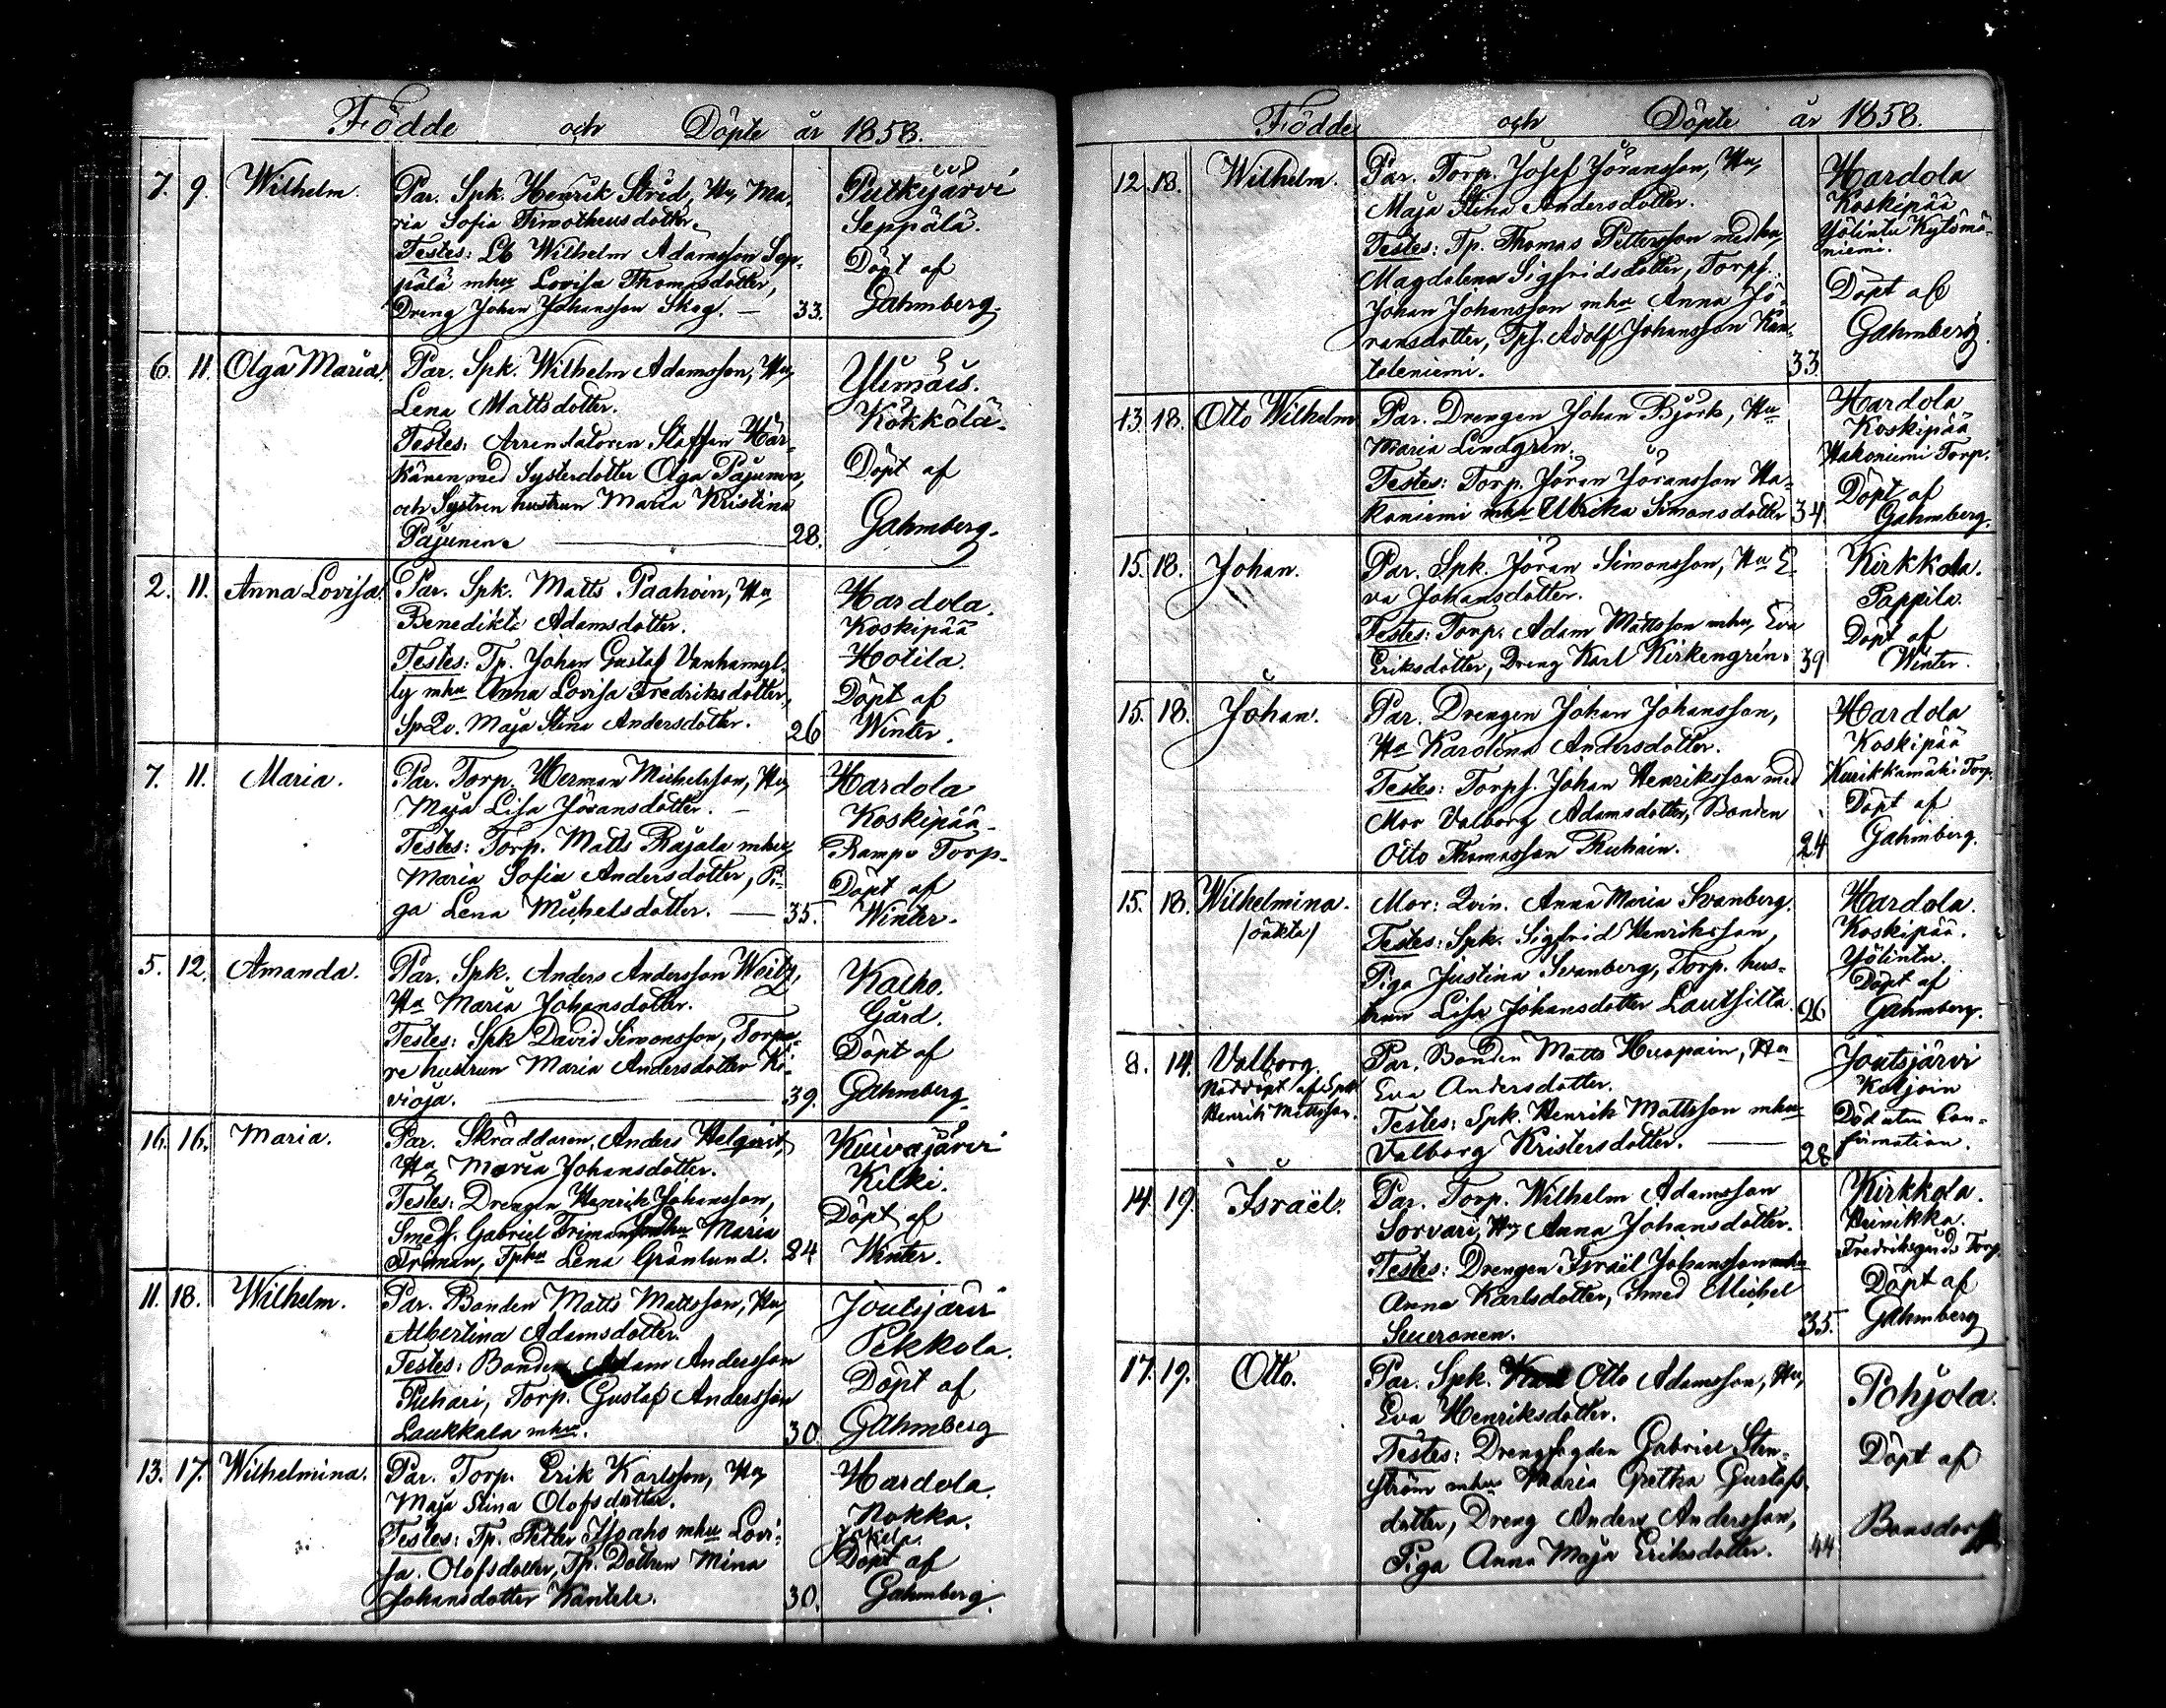 Födde och Döpte år 1858.
7. 9. Wilhelm. Par. Spk. Henrik Strid, Hu, Ma-
ria Sofia Timotheusdotter.
Testes: Lb Wilhelm Adamsson Sep-
pälä mhu Lovisa Thomasdotter,
Dreng Johan Johansson Skog. — 33.
Putkijärvi
Seppälä.
Döpt af
Gahmberg.
6. 11. Olga Maria. Par. Spk. Wilhelm Adamsson, Hu,
Lena Mattsdotter.
Testes: Arrendatoren Staffan Här-
känen med Systerdotter Olga Pajunen,
och Systren hustrun Maria Kristina
Pajunen. — 28.
Ylimäis.
Kökkölä.
Döpt af
Gahmberg.
2. 11. Anna Lovisa. Par. Spk. Matts Paahoin, Hu
Benedikta Adamsdotter.
Testes: Tp. Johan Gustaf Vanhamyl-
ly mhu Anna Lovisa Fredriksdotter,
Sp.Qv. Maja Stina Andersdotter. 26
Hardola.
Koskipää
Hotila.
Döpt af
Winter.
7. 11. Maria. Par. Torp. Herman Michelsson, Hu,
Maja Lisa Jöransdotter. —
Testes: Torp. Matts Rajala mhu,
Maria Sofia Andersdotter, Pi-
ga Lena Michelsdotter. — 35.
Hardola
Koskipää
Rampu Torp.
Döpt af
Winter.
5. 12. Amanda. Par. Spk. Anders Andersson Weitz,
Hu Maria Johansdotter.
Testes: Spk David Simonsson, Torpa-
re hustrun Maria Andersdotter Ki-
vioja. — 39.
Kalho.
Gård.
Döpt af
Gahmberg.
16. 16. Maria. Par. Skräddaren Anders Helqvist,
Hu, Maria Johansdotter.
Testes: Drengen Henrik Johansson,
Smeds. Gabriel Friman mhu Maria
Friman, Tphu Lena Grönlund. 24
Kuivajärvi
Kilki.
Döpt af
Winter.
11. 18. Wilhelm. Par. Bonden Matts Mattsson, Hu,
Albertina Adamsdotter.
Testes: Bonden Adam Andersson
Puhari, Torp. Gustaf Andersson
Laukkala mhu. 30.
Joutsjärvi
Pekkola.
Döpt af
Gahmberg
13. 17. Wilhelmina. Par. Torp. Erik Karlsson, Hu,
Maja Stina Olofsdotter.
Testes: Tp. Petter Isoaho mhu Lovi-
sa Olofsdotter, Tp. Dottren Mina
Johansdotter Kantele. 30.
Hardola.
Nokka.
Jokela.
Döpt af
Gahmberg.
Födde och Döpte år 1858.
12. 18. Wilhelm. Par. Torp. Josef Jöransson, Hu,
Maja Stina Andersdotter.
Testes: Tp. Thomas Pettersson med hu,
Magdalena Sigfridsdotter, Torps.
Johan Johansson mhu Anna Jö-
ransdotter, Tps. Adolf Johansson Kan-
teleniemi. 33.
Hardola
Koskipää
Yölintu Kylsmä-
niemi.
Döpt af
Gahmberg.
13. 18. Otto Wilhelm Par. Drengen Johan Björk, Hu
Maria Lindgrén.
Testes: Torp. Jöran Jöransson Ha-
koniemi mhu Ulrika Simonsdotter 34.
Hardola
Koskipää
Hakoniemi Torp.
Döpt af
Gahmberg.
15. 18. Johan. Par. Spk. Jöran Simonsson, Hu E-
va Johansdotter.
Testes: Torp. Adam Mattsson mhu, Eva
Eriksdotter, Dreng Karl Kirkengrén. 39
Kirkkola.
Pappila.
Döpt af
Winter.
15. 18. Johan. Par. Drengen Johan Johansson,
Hu Karolina Andersdotter.
Testes: Torps. Johan Henriksson med
Mor Valborg Adamsdotter, Bonden
Otto Thomasson Ruhain. 24
Hardola
Koskipää
Kurikkamäki Torp.
Döpt af
Gahmberg.
15. 18. Wilhelmina.
/oäkta/
Mor: Qvin. Anna Maria Svanberg.
Testes: Spk. Sigfrid Henriksson,
Piga Justina Svanberg, Torp. hus-
trun Lisa Johansdotter Lautsilta. 26
Hardola.
Koskipää.
Yölintu.
Döpt af
Gahmberg.
8. 14. Valborg.
Nöddöpt af Spk
Henrik Mattsson.
Par. Bonden Matts Huopain, Hu
Eva Andersdotter.
Testes: Spk. Henrik Mattsson mhu
Valborg Kristersdotter. — 28
Joutsjärvi
Koljoin
Död utan Con-
firmation.
14. 19. Israël. Par. Torp. Wilhelm Adamsson
Sorvari, Hu, Anna Johansdotter.
Testes: Drengen Israël Johansson mhu
Anna Karlsdotter, Smed Michel
Suuronen. 35.
Kirkkola.
Heinikka.
Fredriksgårds Torp.
Döpt af
Gahmberg
17. 19. Otto. Par. Spk. Otto Adamsson, Hu,
Eva Henriksdotter.
Testes: Drengsägden Gabriel Sten-
ström mhu Maria Gretha Gustafs-
dotter, Dreng Anders Andersson,
Piga Anna Maja Eriksdotter. 44
Pohjola.
Döpt af
Bonsdorff